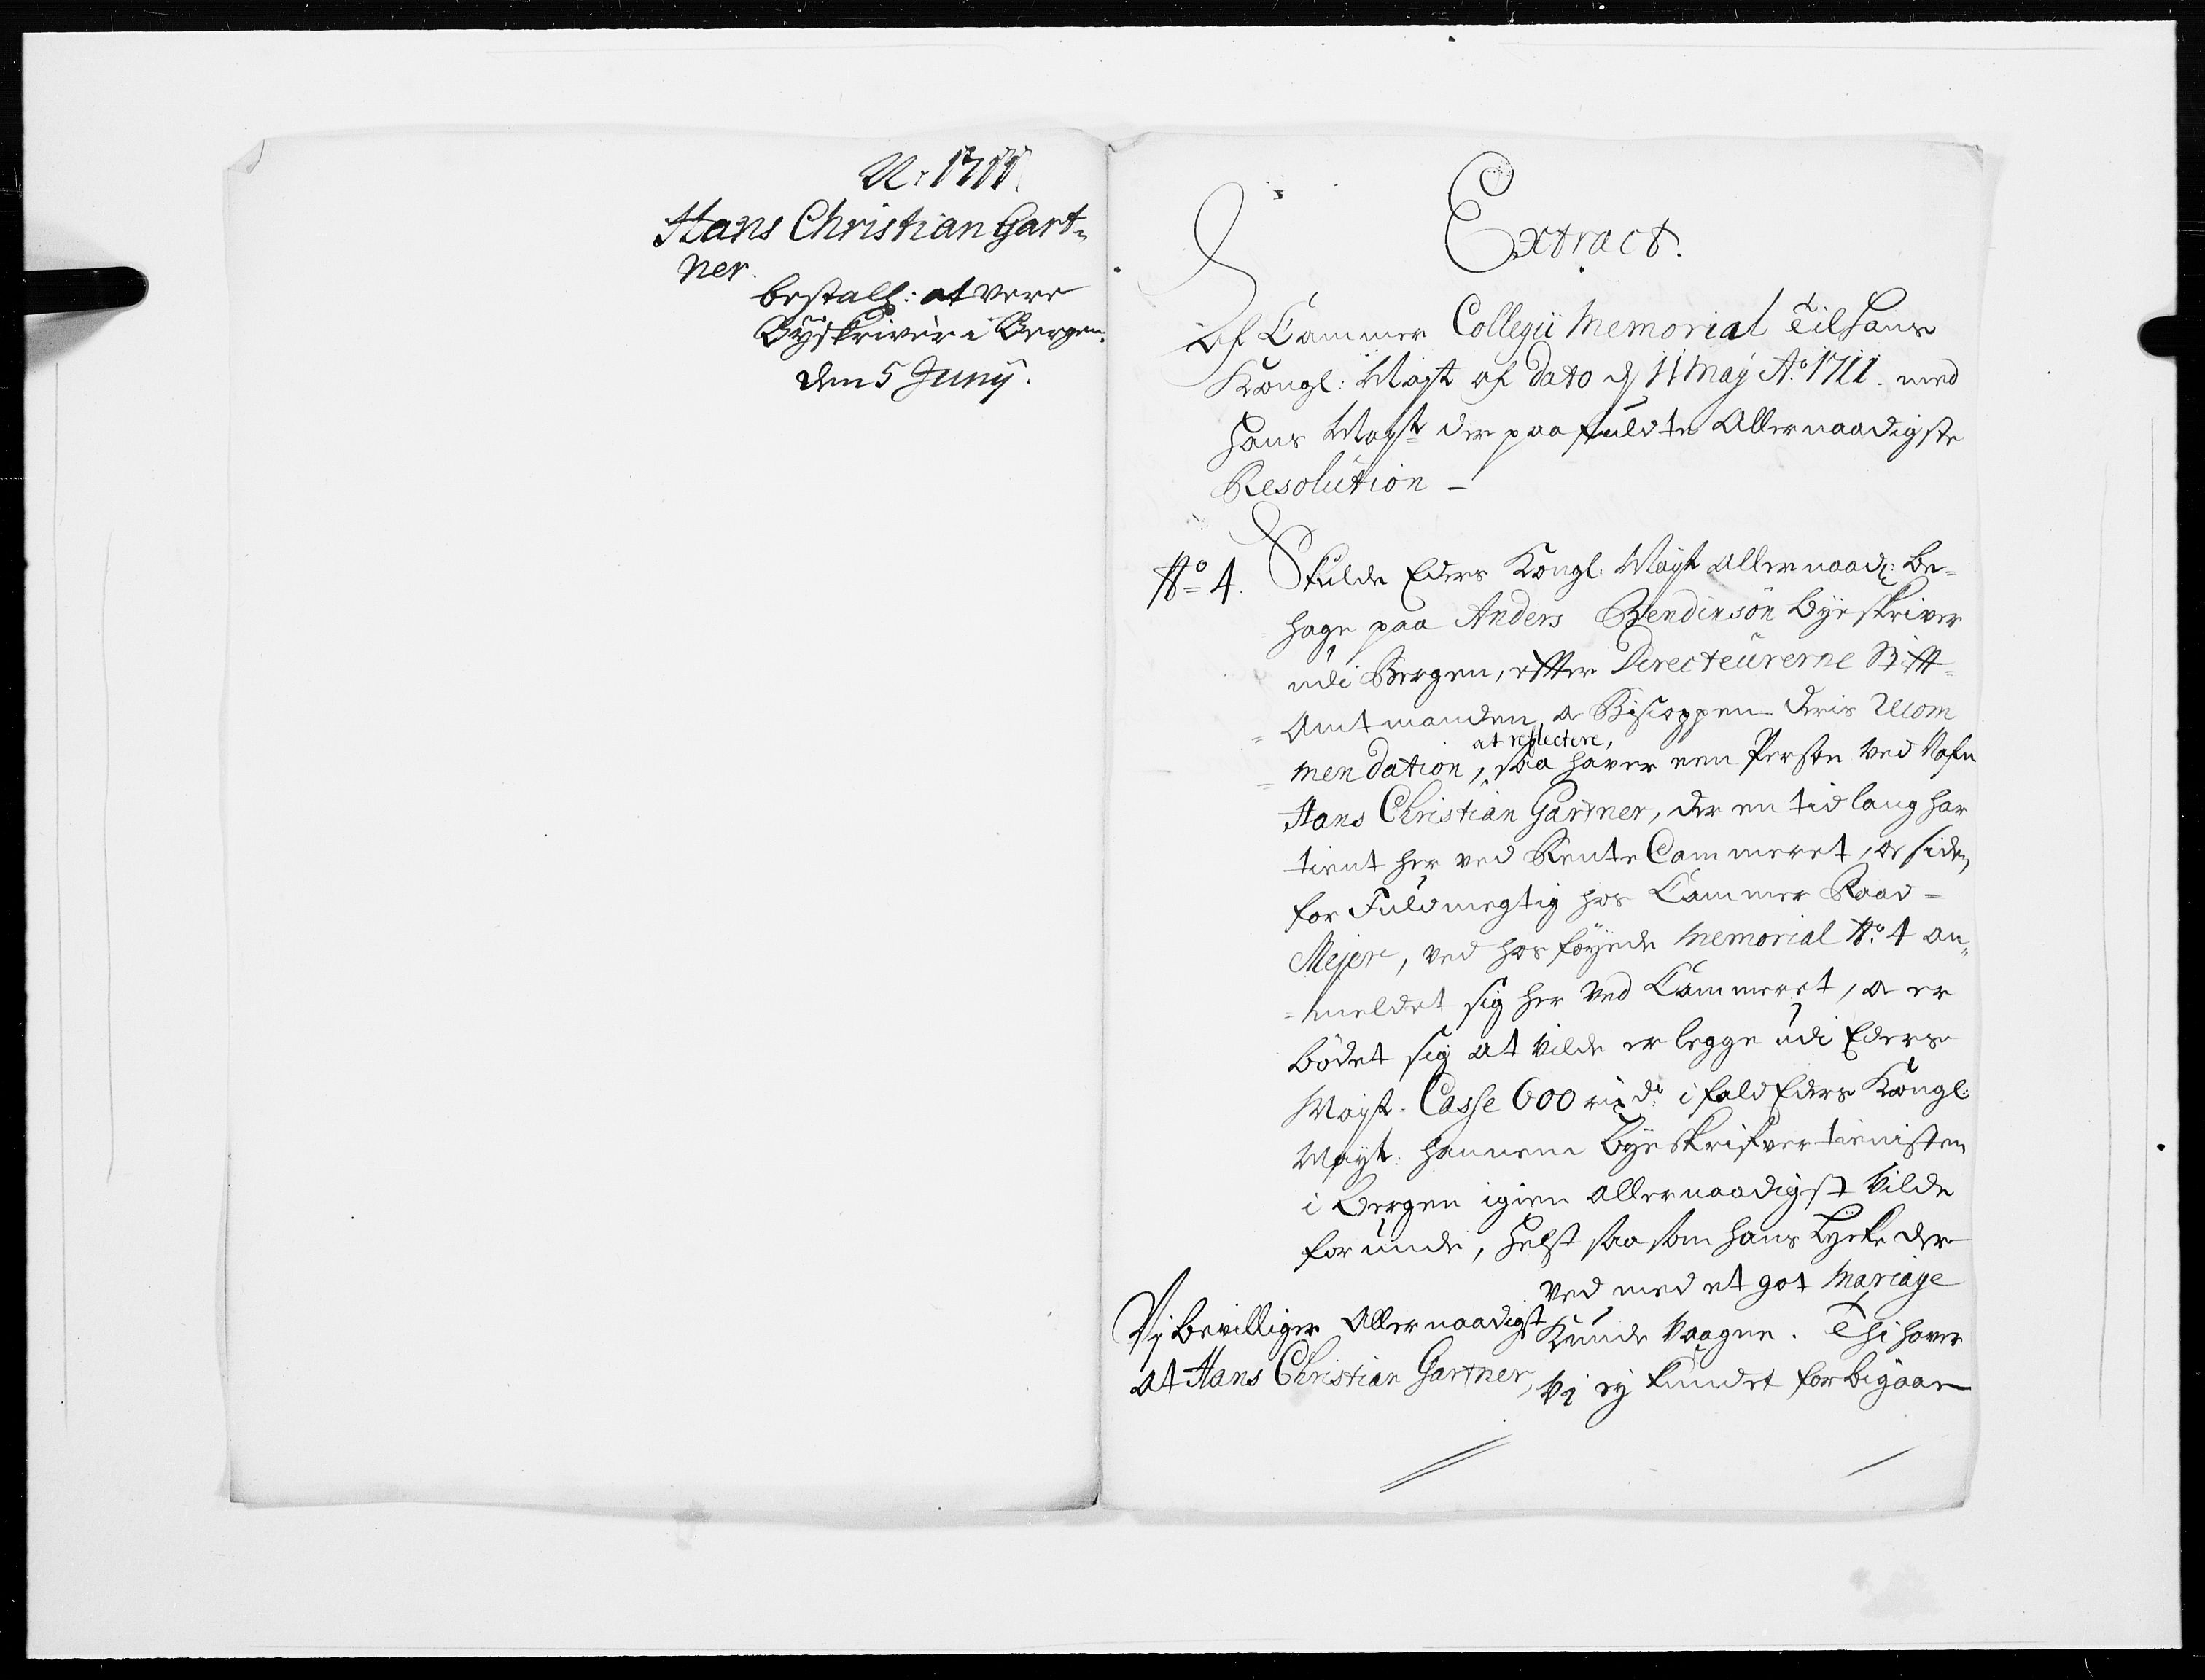 A: 1711.
Hans Christian Gart-
ner.
bestall: at være
Byskriver i Bergen.
den 5 Junij.
Extract.
Af Cammer Collegii Memorial til Hans
Kongl: Mayt af Dato d 11 May Ao 1711. med
Hans Mayts der paa fuldte Allernaadigste
Resolution -
No 4. Skulde Eders Kongl. Mayt allernaad: be-
hage paa Anders Bendixsön Byeskriver
udi Bergen, effter Directeürerne Stift-
Amtmanden, og Bisceppen deris Recom
at reflectere,
mendation, saa haver een Person ved Nafn
Hans Christian Gartner, der en tid lang har
tient her ved Rente Cammeret, og siden
for Fuldmegtig hos Cammer Raad
Mejer, ved hosföyede Memorial No. 4 an-
meldet sig her ved Cammeret, og er
bödet sig at vilde erlegge udi Eders
Mayt. Casse 600 rixdr: ifald Eders Kongl:
Mayt: hannem Byeskrifver tienisten
i Bergen igien allernaadigst vilde
forunde, helst saasom hans Lycke der
ved med et got Mariage
kunde vaagne. Thi haver
Vi ey kundet forbigaae
Vj bevilliger allernaadigst
at Hans Christian Gartner,